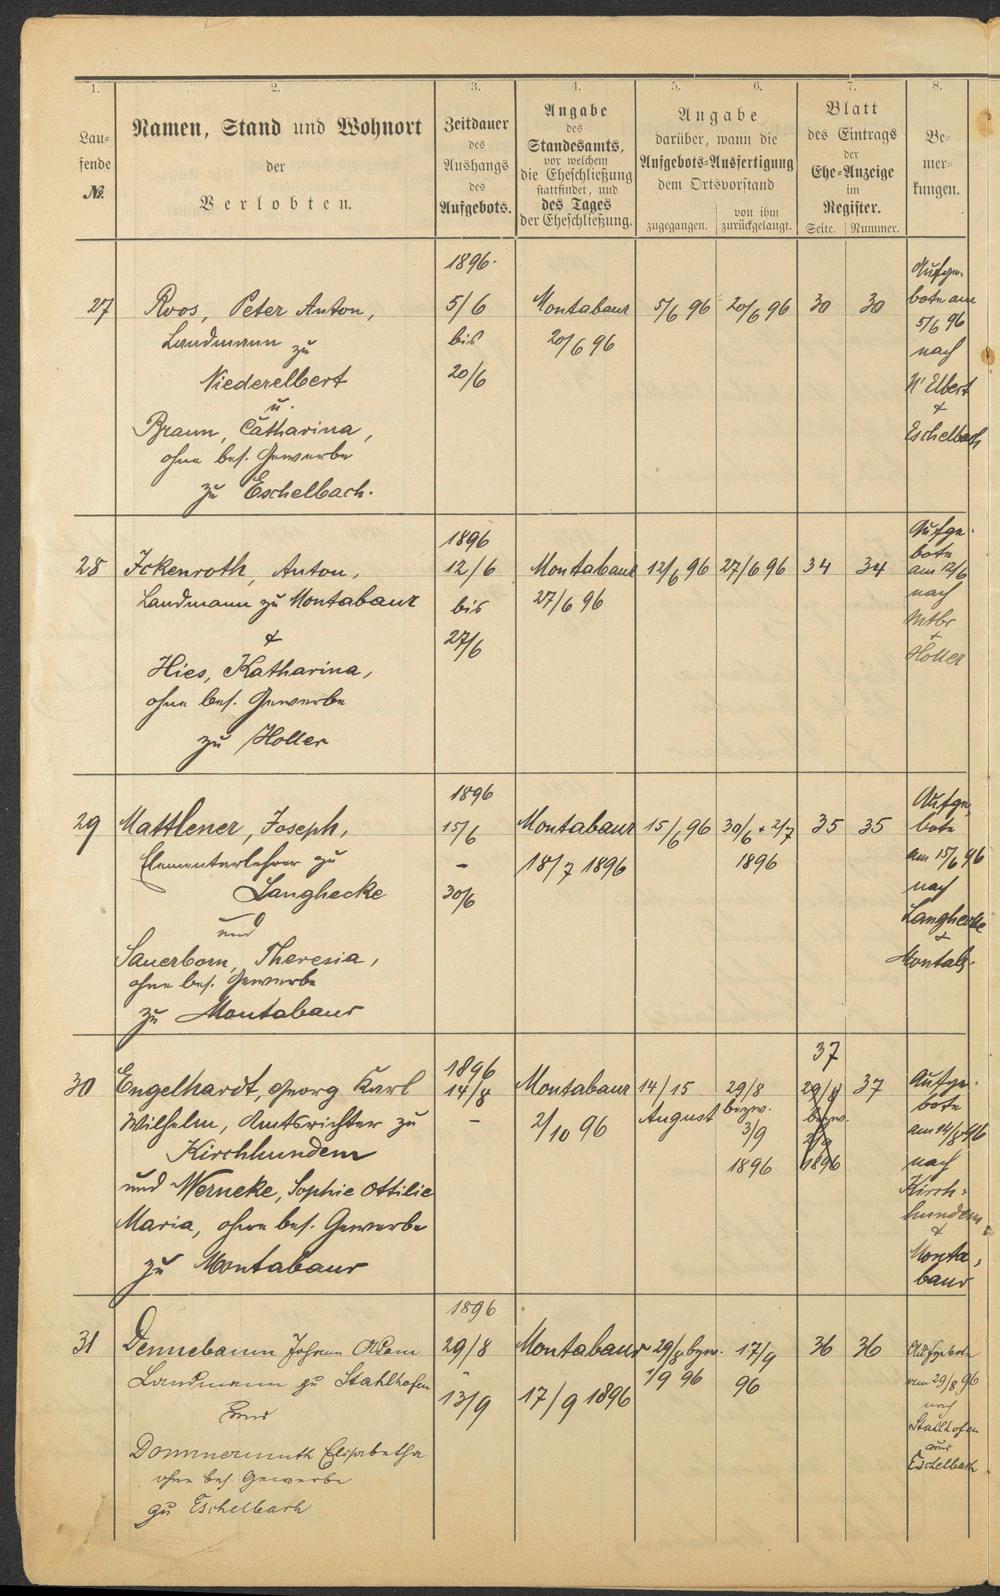 1.
2.
3.
4.
5.
6.
7.
8.
Lau-
fende
№.
Namen, Stand und Wohnort
der
Verlobten.
Zeitdauer
des
Aushangs
des
Aufgebots.
Angabe
des
Standesamts,
vor welchem
die Eheschließung
stattfindet, und
des Tages
der Eheschließung.
Angabe
darüber, wann die
Aufgebots-Ausfertigung
dem Ortsvorstand
zugegangen.
von ihm
zurückgelangt.
Blatt
des Eintrags
der
Ehe-Anzeige
im
Register.
Seite.
Nummer.
Be-
mer-
kungen.
27
Roos, Peter Anton,
Landmann zu
Niederelbert
u.
Braun, Catharina,
ohne bes. Gewerbe
zu Eschelbach.
1896.
5/6
bis
20/6
Montabaur
20/6 96
5/6 96
20/6 96
30
30
Aufge-
bote am
5/6 96
nach
N'Elbert
+
Eschelbach
28
Ickenroth, Anton,
Landmann zu Montabaur
+
Hies, Katharina,
ohne bes. Gewerbe
zu Holler
1896
12/6
bis
27/6
Montabaur
27/6 96
12/6 96
27/6 96
34
34
Aufge-
bote
am 12/6
nach
Mtbr
+
Holler
29
Mattlener, Joseph,
Elementarlehrer zu
Langhecke
und
Sauerborn, Theresia,
ohne bes. Gewerbe
zu Montabaur
1896
15/6
-
30/6
Montabaur
18/7 1896
15/6 96
30/6 + 2/7
1896
35
35
Aufge-
bote
am 15/6 96
nach
Langhecke
+
Montab.
30
Engelhardt, Georg Karl
Wilhelm, Amtsrichter zu
Kirchhundem
und Werneke, Sophie Ottilie
Maria, ohne bes. Gewerbe
zu Montabaur
1896
14/8
-
Montabaur
2/10 96
14/15
August
29/8
bezw.
3/9
1896
37
29/8
bezw.
3/9
1896
37
Aufge-
bote
am 14/8 96
nach
Kirch-
hundem
+
Monta-
baur
31
Dennebaum Johann Adam
Landmann zu Stahlhofen
und
Dommermuth Elisabetha
ohne bes. Gewerbe
zu Eschelbach
1896
29/8
-
13/9
Montabaur
17/9 1896
29/8 bezw.
1/9 96
17/9
96
36
36
Aufgebote
am 29/8 96
nach
Stahlhofen
und
Eschelbach